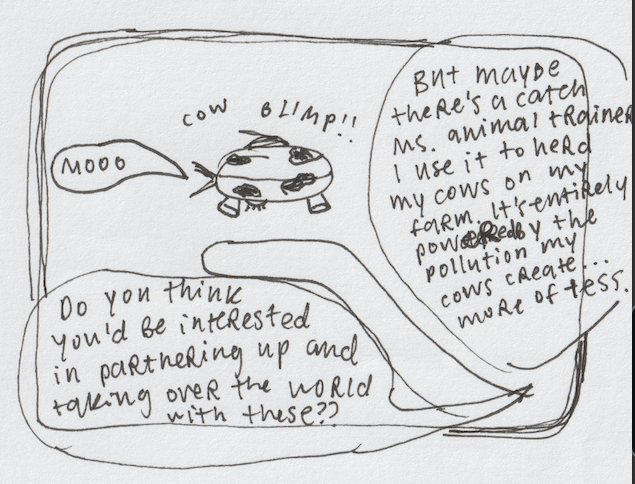 COW BLIMP!!
MOOO
But maybe
there's a catch
Ms. animal trainer
I use it to herd
my cows on my
farm. It's entirely
powered by the
pollution my
cows create...
more of less.
Do you think
you'd be interested
in partnering up and
taking over the world
with these??